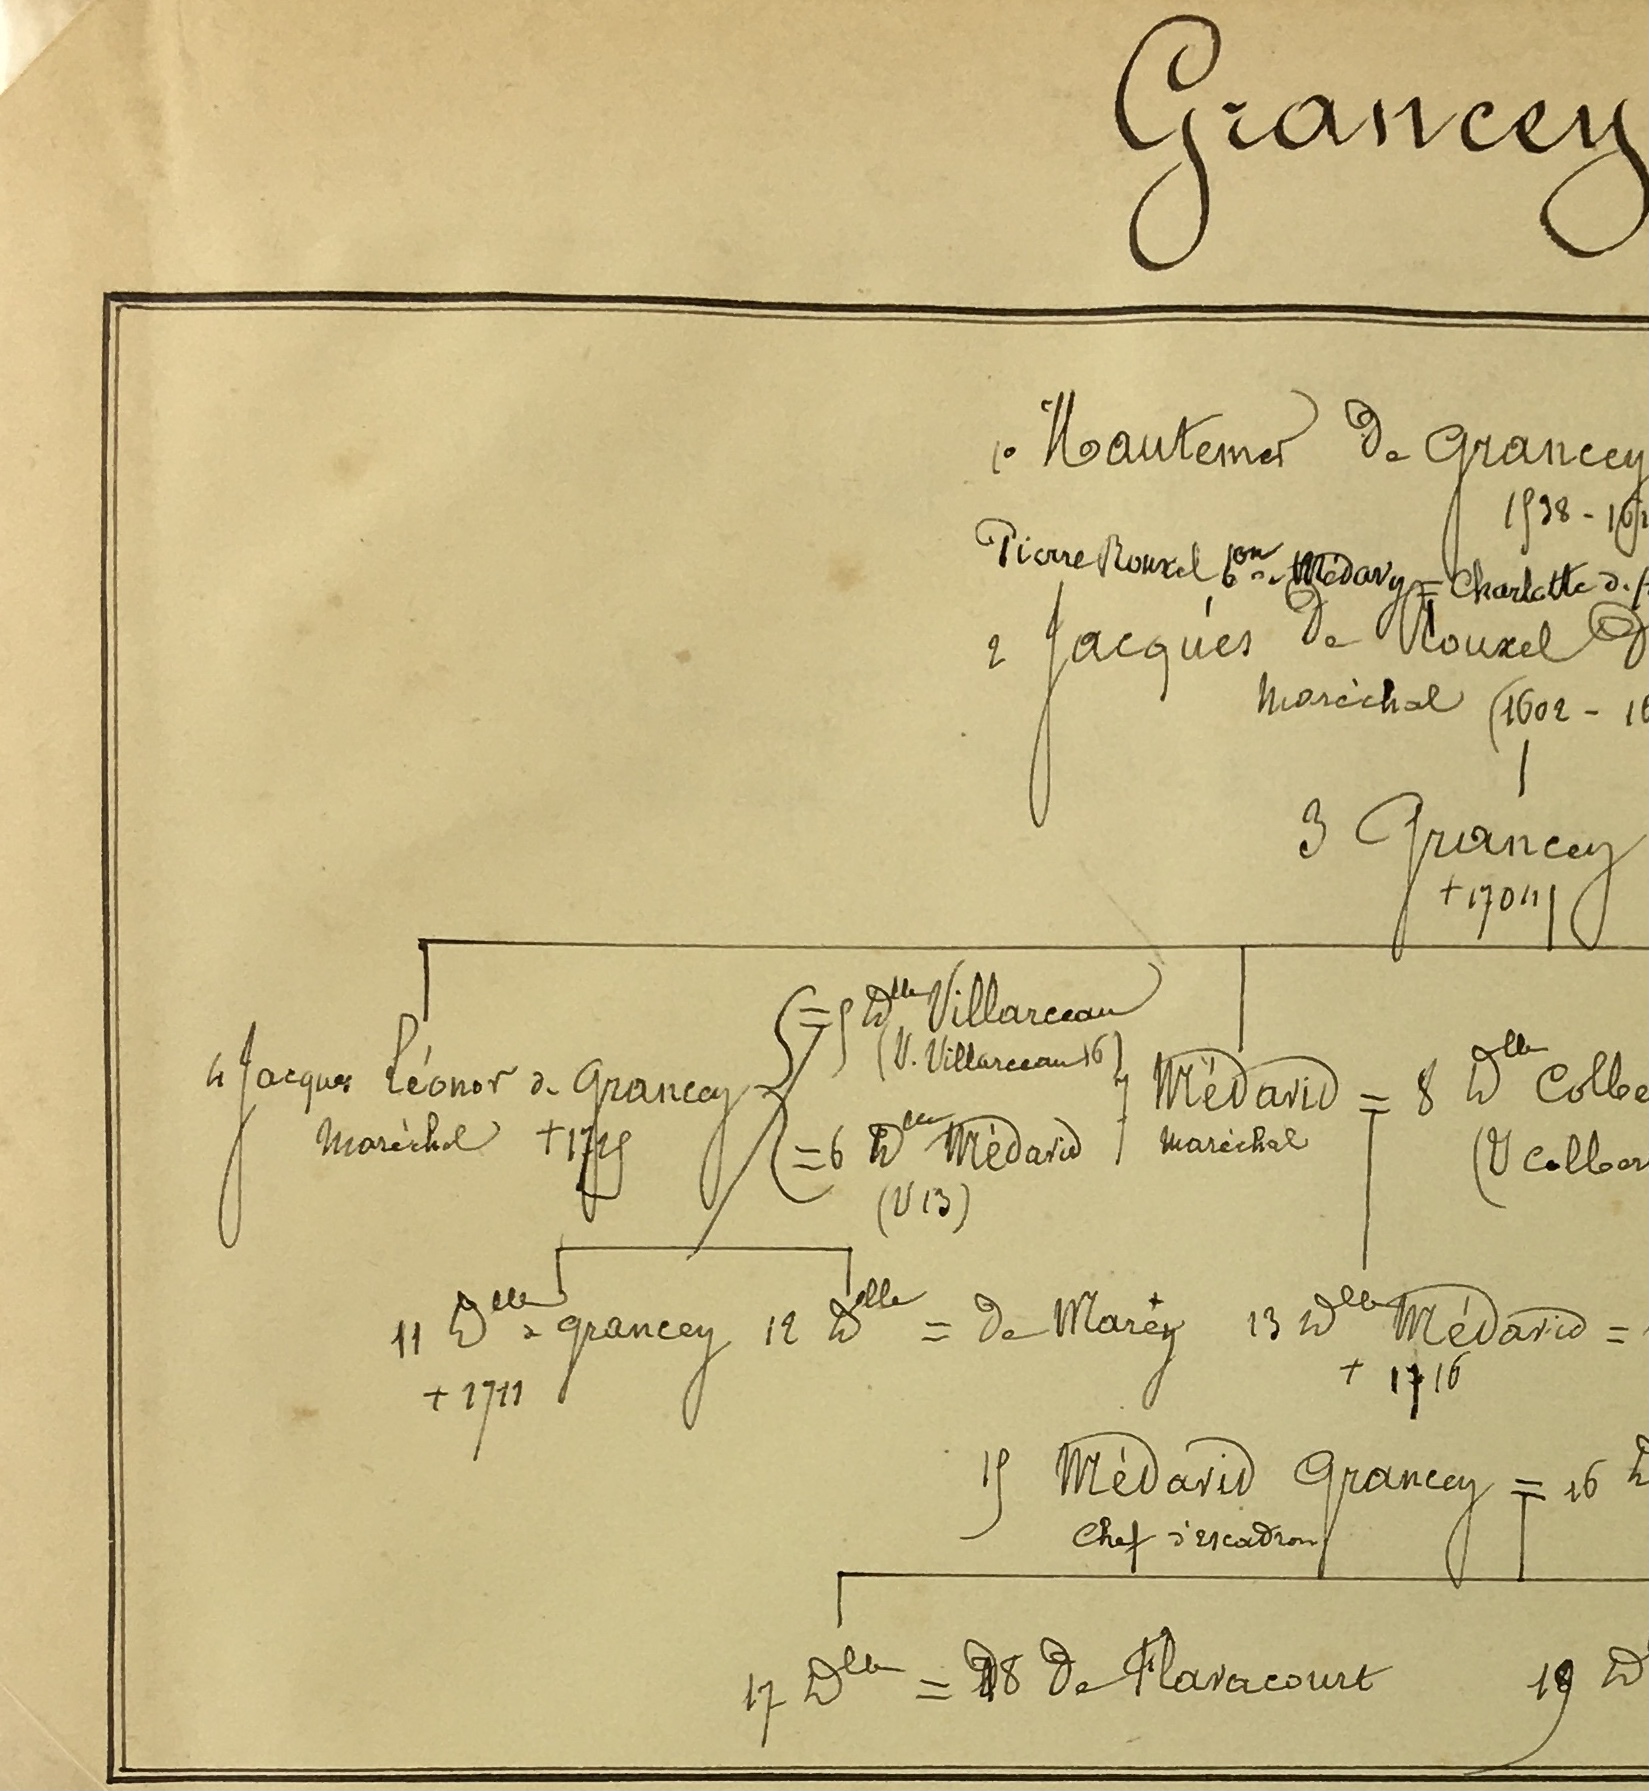 Grancey
1° Hautemer de Grancey
1538 - 16
Pierre Rouxel bon de Médavy = Charlotte d.
2 Jacques de Rouxel
Maréchal (1602 - 16
3 Grancey
+ 1704
= 5 Dlle Villarceau
(V. Villarceau 16)
4 Jacques Léonor de Grancey
7 Médavid = 8 Dlle Colbe
Maréchal + 1725
= 6 Dlle Médavid
Maréchal
(V Colber
(V 13)
11 Dlle de Grancey 12 Dlle = de Marey 13 Dlle Médavid =
+ 1711
+ 1716
15 Médavid Grancey = 16 D
Chef d'escadron
17 Dlle = 18 de Flavacourt 19 D